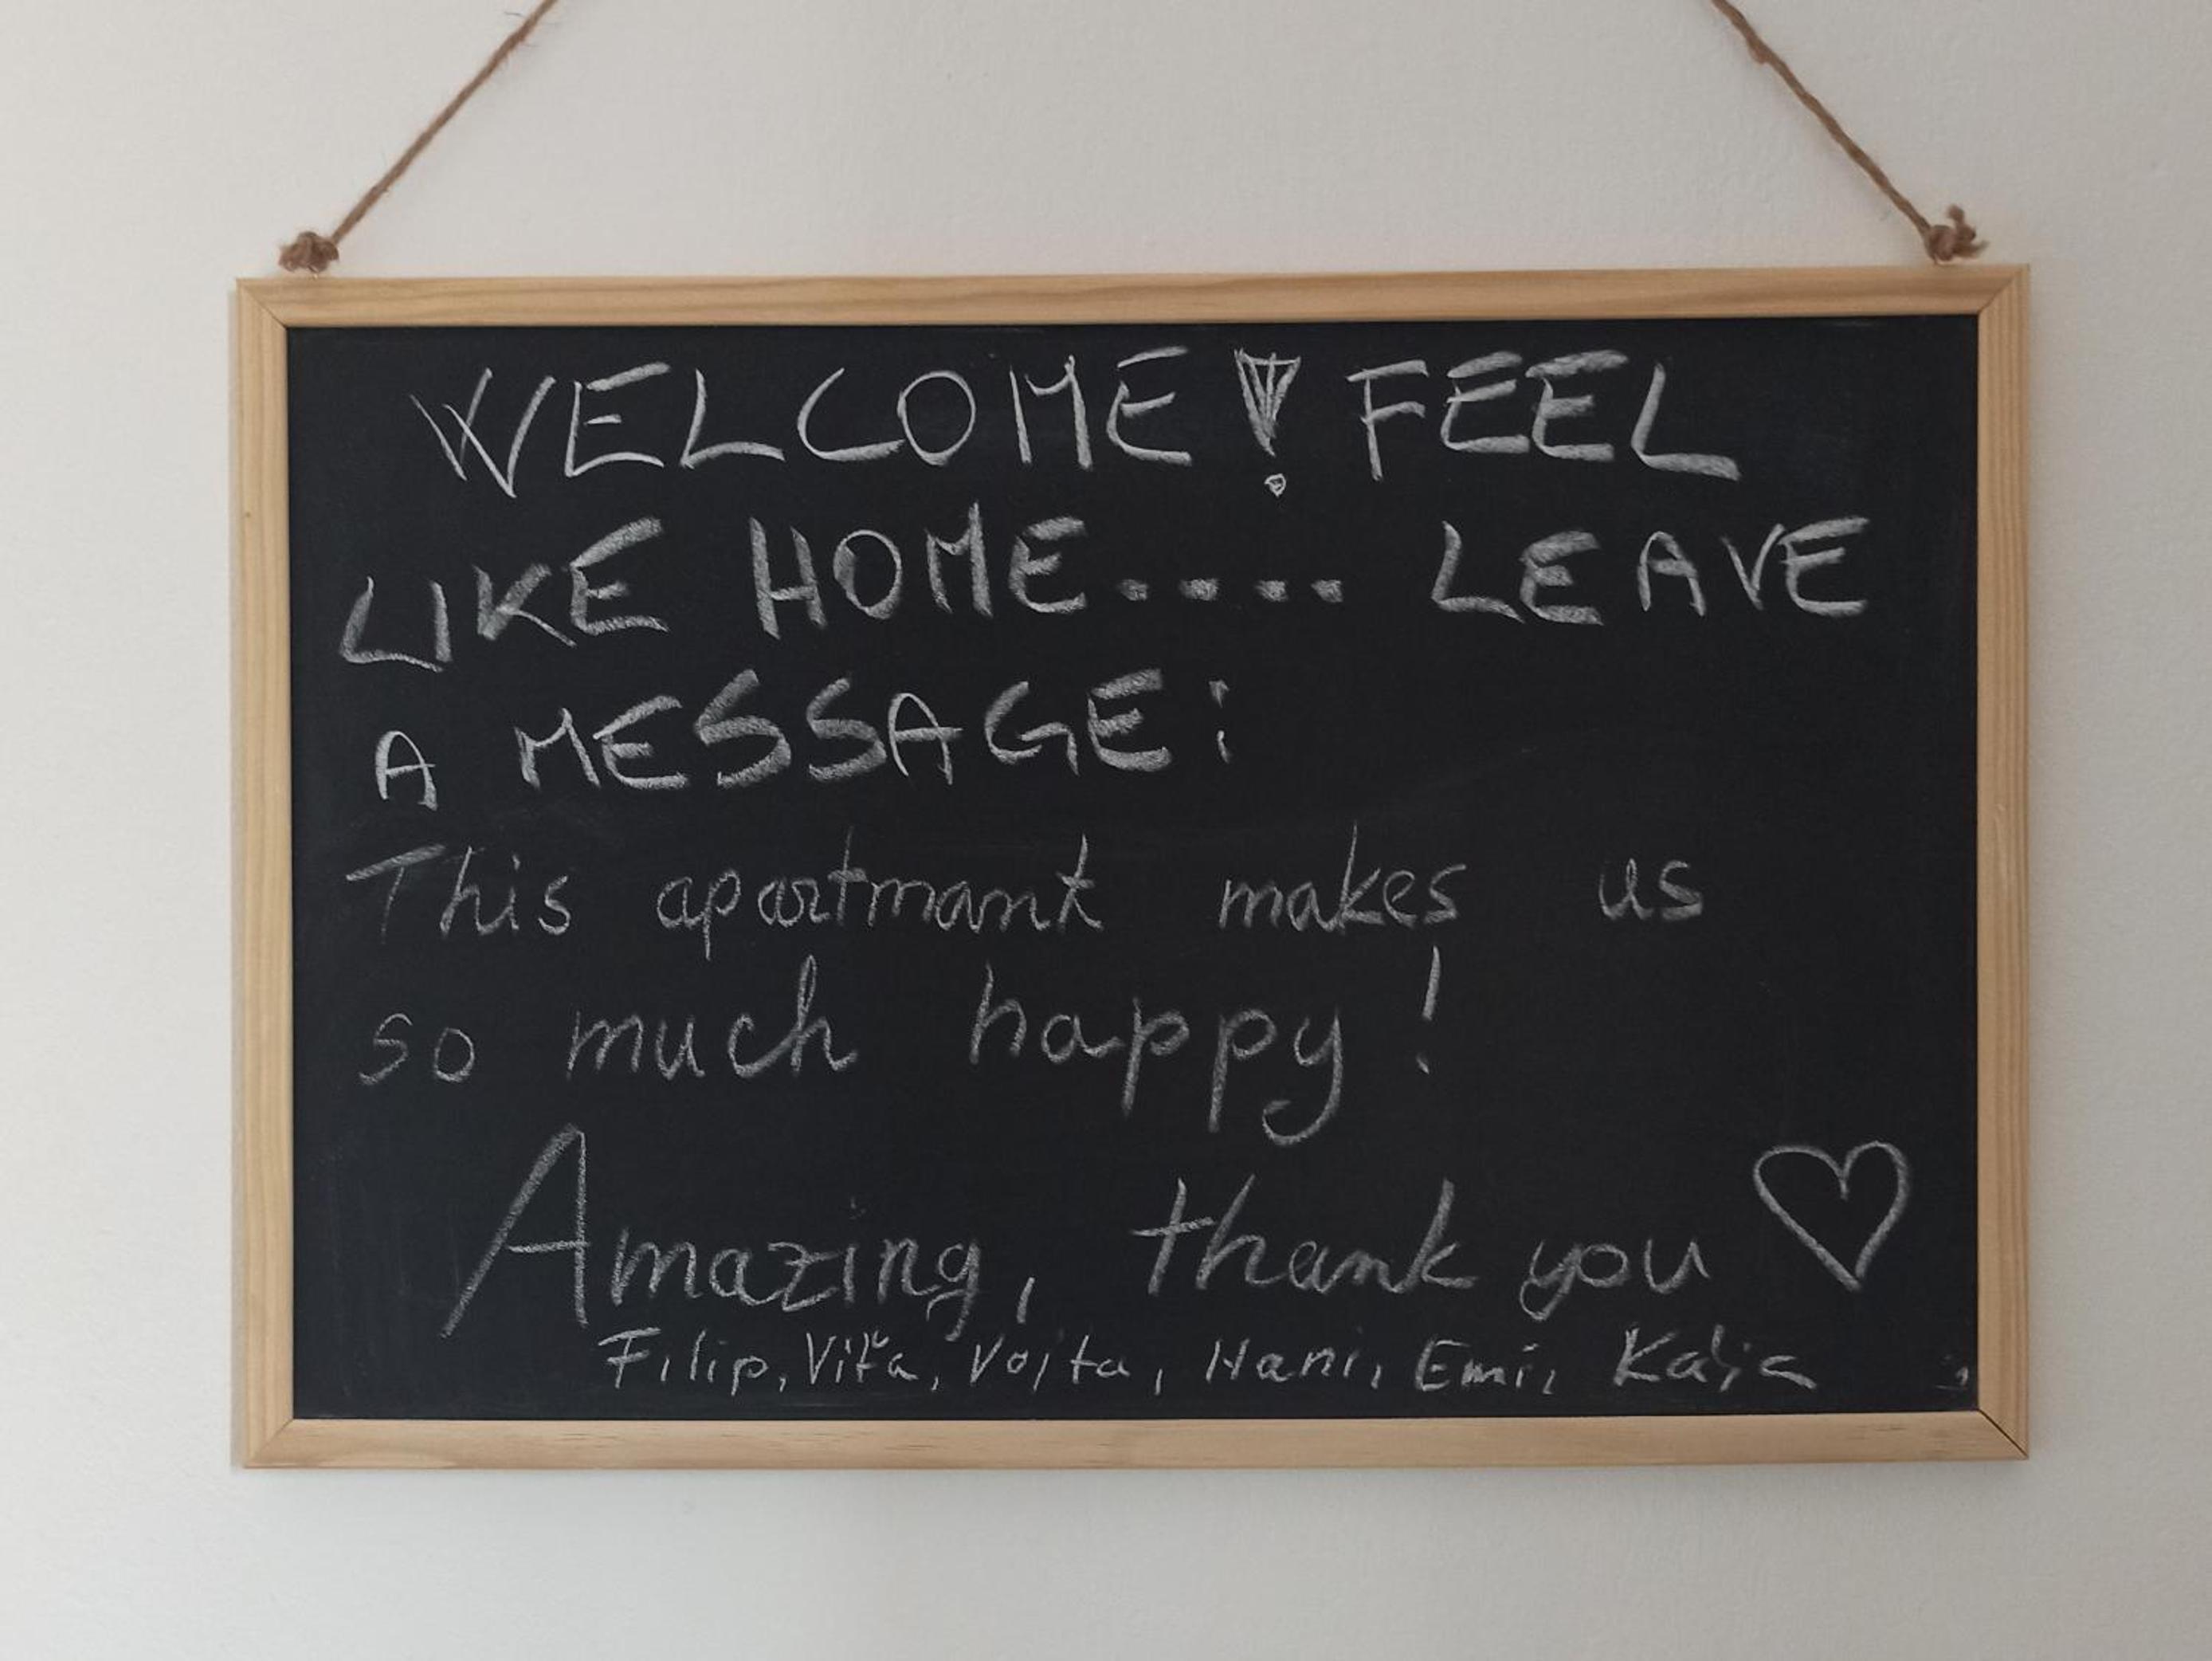 WELCOME! FEEL
LIKE HOME.... LEAVE
A MESSAGE:
This apartmant makes us
so much happy!
Amazing, thank you ♡
Filip, Víťa, Vojta, Hani, Emi,